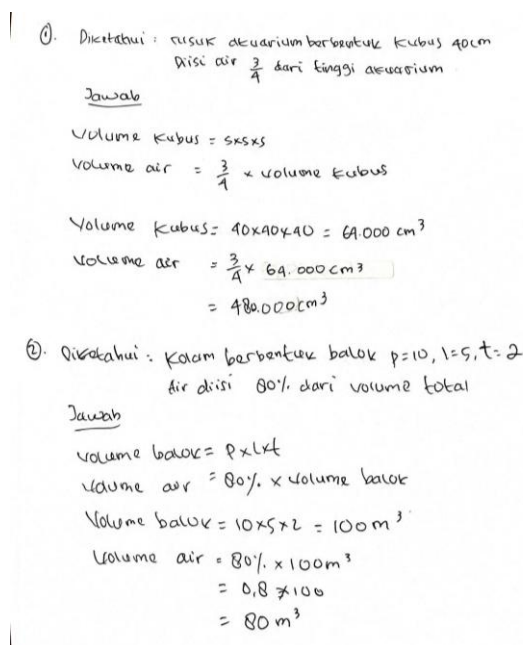 ①. Diketahui : rusuk akuarium berbentuk kubus 40cm
Diisi air 3/4 dari tinggi akuarium
Jawab
Volume kubus = s×s×s
Volume air = 3/4 × volume kubus
Volume kubus = 40×40×40 = 64.000 cm³
Volume air = 3/4 × 64.000 cm³
= 480.000 cm³
②. Diketahui : Kolam berbentuk balok p=10, l=5, t=2
Air diisi 80% dari volume total
Jawab
volume balok = P×l×t
Volume air = 80% × volume balok
Volume balok = 10×5×2 = 100 m³
Volume air = 80% × 100m³
= 0,8 × 100
= 80 m³